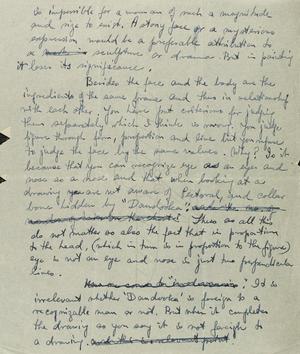 So impossible for a woman of such a magnitude
and size to exist. A stony face or a mysterious
expression would be a preferable attribution to
a sculpture or dramas. But in painting
it loses its significance.
Besides the face and the body are the
ingredients of the same frame and thus in relationship
with each other. You put criterions for judging
them separately which I think is wrong. You judge
figure through form, proportion and line but you refuse
to judge the face by the same values. Why? Is it
because that you can recognize eye as an eye and
nose as a nose and that when looking at a
drawing you are not aware of pectoral and collar
bone hidden by "Dandooka".
Thus as all this
do not matter as also the fact that in proportion
to the head, (which in turn is in proportion to the figure)
eye is not an eye and nose is just two perpendicular
lines.
It is
irrelevant whether "Dandooka" is foreign to a
recognizable man or not. But when it completes
the drawing as you say it is not foreign to
a drawing.